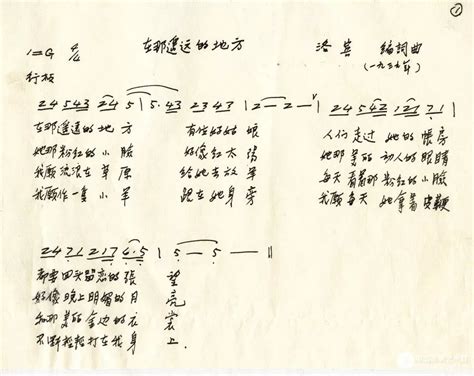 ①
1=G 4/4 在那遙远的地方 洛宾 编詞曲
行板 (一九三九年)
24 543 24 5 | 5·43 2343 | 2 — 2 — | 24 542 121 71 |
在那遙远的地方 有位好姑娘 人们走过她的帳房
她那粉红的小臉 好像红太陽 她那美丽动人的眼睛
我願流浪在草原 跟她去放羊 每天看着那粉红的小臉
我願作一隻小羊 跟在她身旁 我願每天她拿着皮鞭
2471 217 6·5 | 5 — 5 — ||
都要回头留恋的張望
好像晚上明媚的月亮
和那美丽金边的衣裳
不断輕輕打在我身上